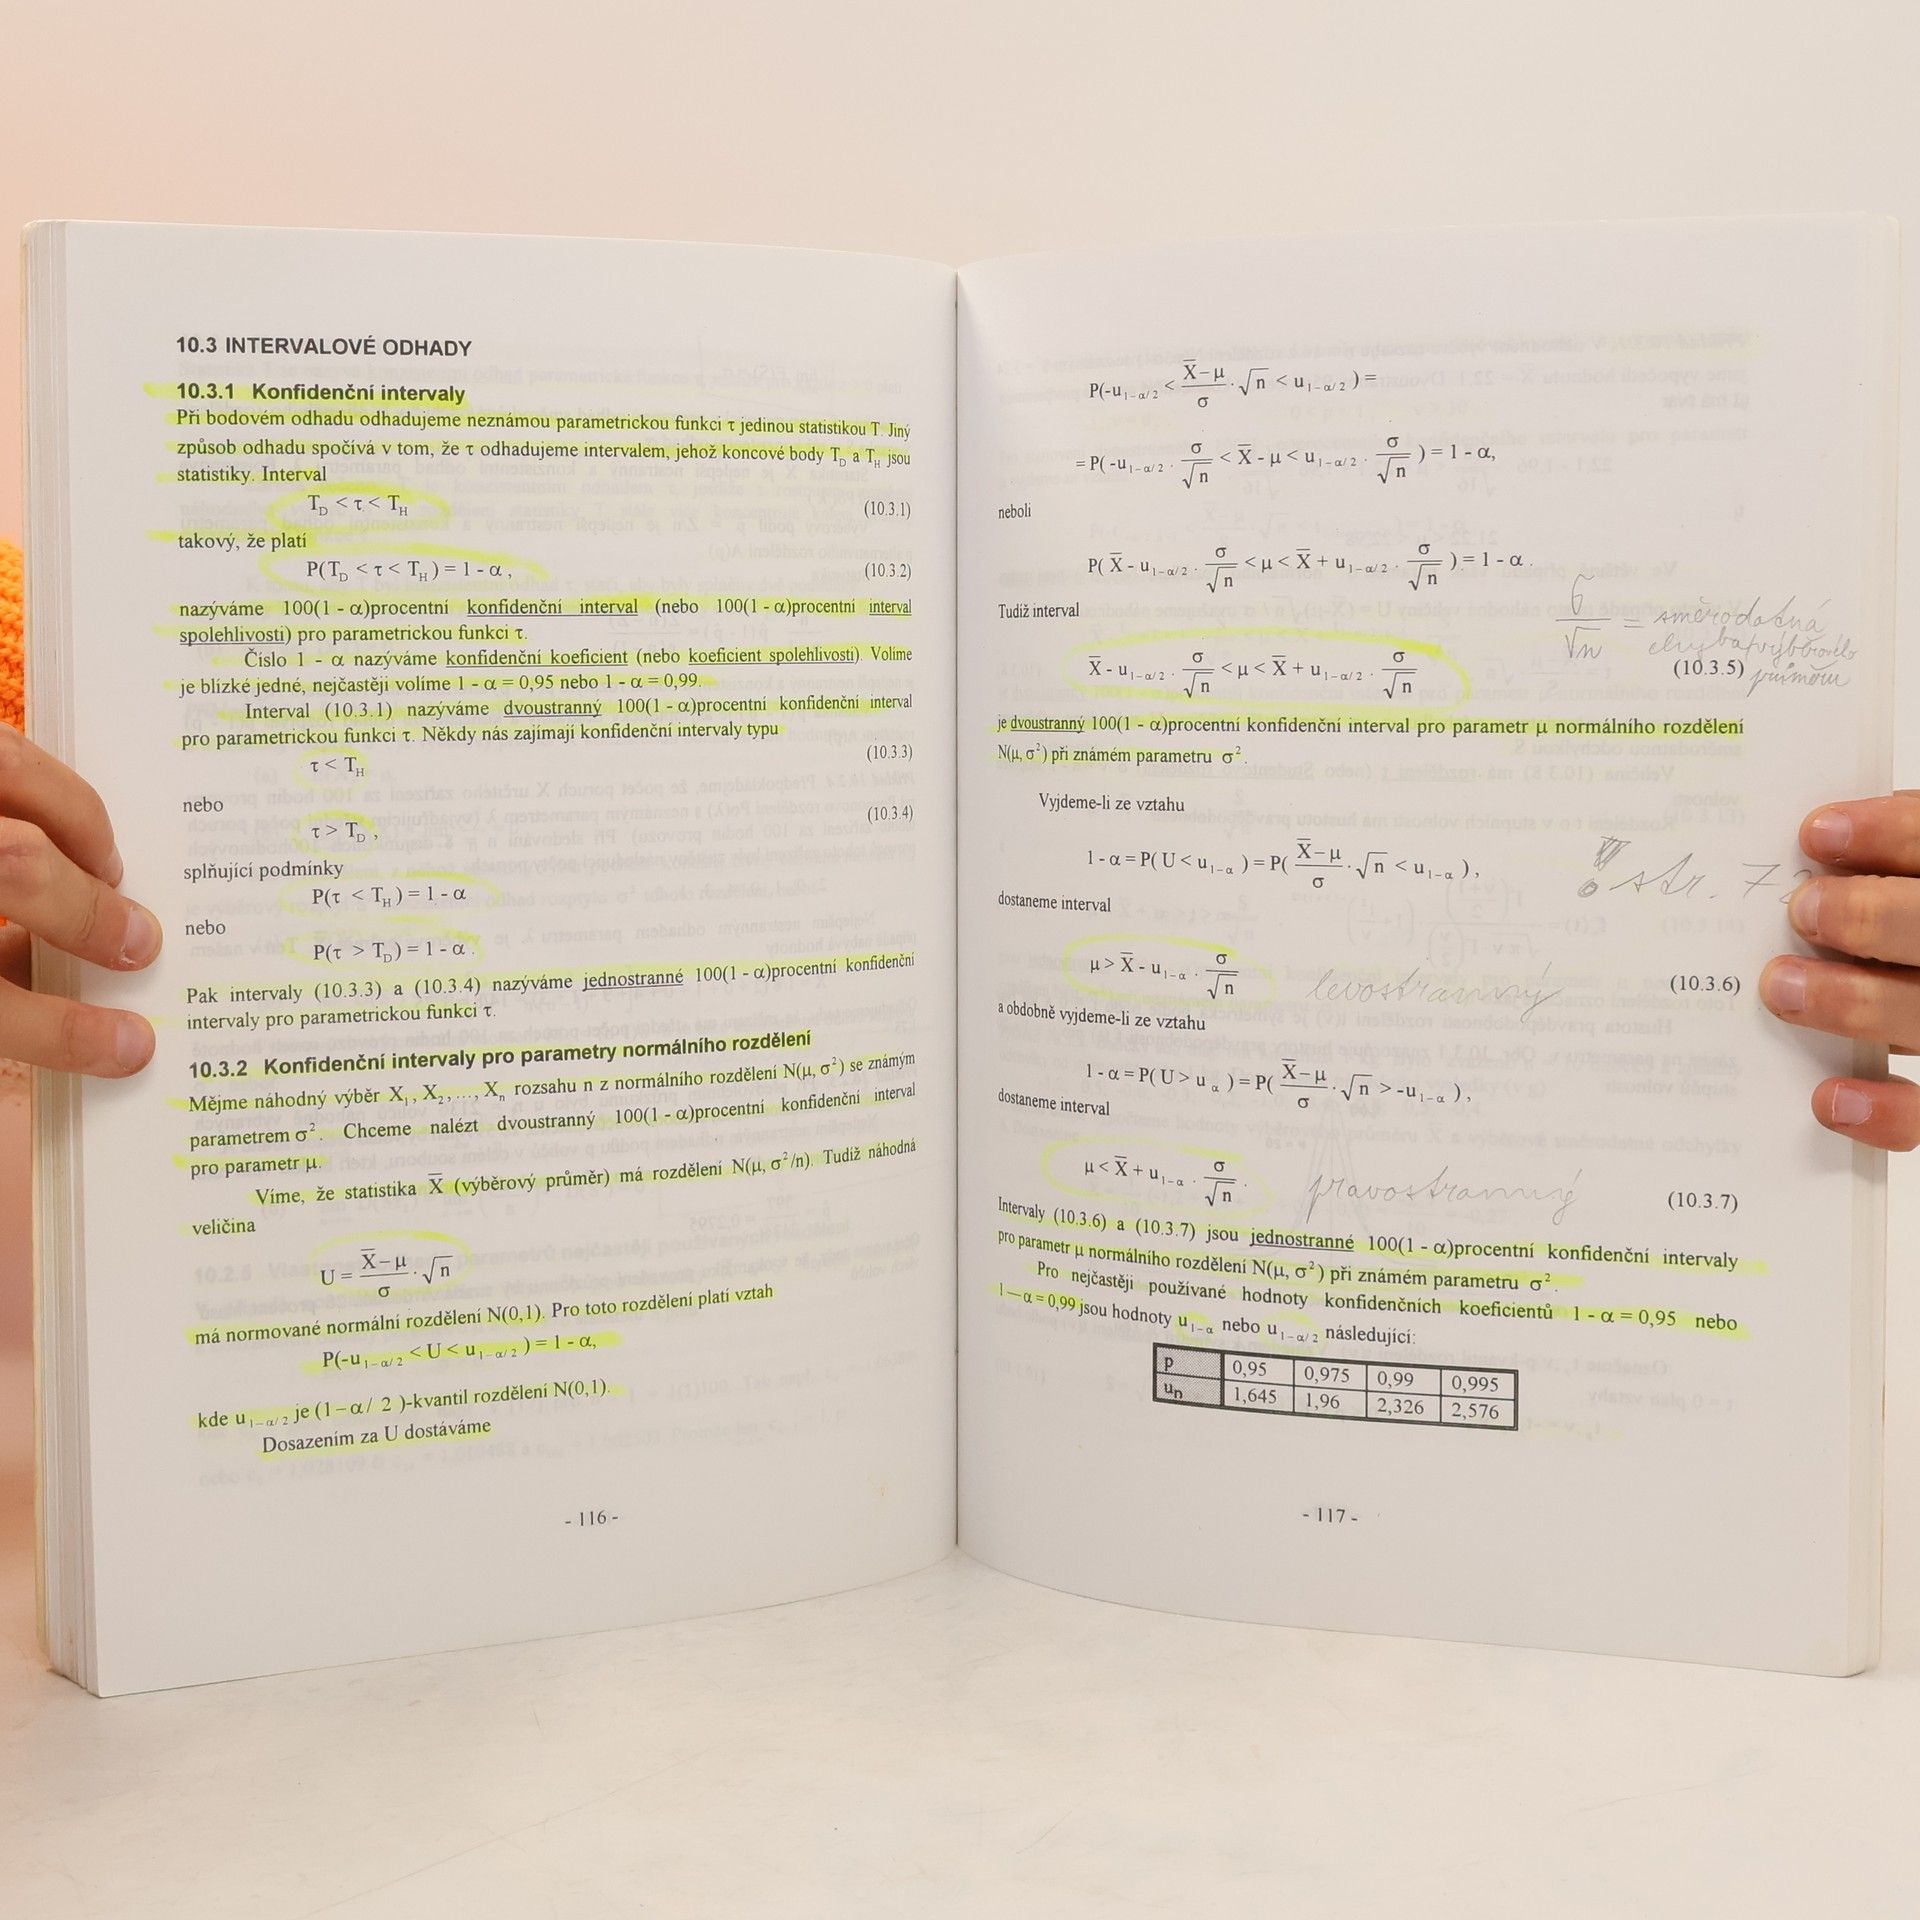 10.3 INTERVALOVÉ ODHADY
10.3.1 Konfidenční intervaly
Při bodovém odhadu odhadujeme neznámou parametrickou funkci τ jedinou statistikou T. Jiný
způsob odhadu spočívá v tom, že τ odhadujeme intervalem, jehož koncové body T_D a T_H jsou
statistiky. Interval
T_D < τ < T_H (10.3.1)
takový, že platí
P(T_D < τ < T_H) = 1 - α, (10.3.2)
nazýváme 100(1 - α)procentní konfidenční interval (nebo 100(1 - α)procentní interval
spolehlivosti) pro parametrickou funkci τ.
Číslo 1 - α nazýváme konfidenční koeficient (nebo koeficient spolehlivosti). Volíme
je blízké jedné, nejčastěji volíme 1 - α = 0,95 nebo 1 - α = 0,99.
Interval (10.3.1) nazýváme dvoustranný 100(1 - α)procentní konfidenční interval
pro parametrickou funkci τ. Někdy nás zajímají konfidenční intervaly typu
τ < T_H (10.3.3)
nebo
τ > T_D , (10.3.4)
splňující podmínky
P(τ < T_H) = 1 - α
nebo
P(τ > T_D) = 1 - α .
Pak intervaly (10.3.3) a (10.3.4) nazýváme jednostranné 100(1 - α)procentní konfidenční
intervaly pro parametrickou funkci τ.
10.3.2 Konfidenční intervaly pro parametry normálního rozdělení
Mějme náhodný výběr X₁, X₂, ..., Xₙ rozsahu n z normálního rozdělení N(μ, σ²) se známým
parametrem σ². Chceme nalézt dvoustranný 100(1 - α)procentní konfidenční interval
pro parametr μ.
Víme, že statistika X̅ (výběrový průměr) má rozdělení N(μ, σ²/n). Tudíž náhodná
veličina
U = (X̅ - μ)/σ · √n
má normované normální rozdělení N(0,1). Pro toto rozdělení platí vztah
P(-u_{1-α/2} < U < u_{1-α/2}) = 1 - α,
kde u_{1-α/2} je (1 - α/ 2 )-kvantil rozdělení N(0,1).
Dosazením za U dostáváme
- 116 -
P(-u_{1-α/2} < (X̅ - μ)/σ · √n < u_{1-α/2}) =
= P(-u_{1-α/2} · σ/√n < X̅ - μ < u_{1-α/2} · σ/√n) = 1 - α,
neboli
P( X̅ - u_{1-α/2} · σ/√n < μ < X̅ + u_{1-α/2} · σ/√n ) = 1 - α .
Tudíž interval
σ/√n = směrodatná
chyba výběrového
průměru
X̅ - u_{1-α/2} · σ/√n < μ < X̅ + u_{1-α/2} · σ/√n (10.3.5)
je dvoustranný 100(1 - α)procentní konfidenční interval pro parametr μ normálního rozdělení
N(μ, σ²) při známém parametru σ².
Vyjdeme-li ze vztahu
1 - α = P( U < u_{1-α} ) = P( (X̅ - μ)/σ · √n < u_{1-α} ) ,
! str. 72
dostaneme interval
μ > X̅ - u_{1-α} · σ/√n levostranný (10.3.6)
a obdobně vyjdeme-li ze vztahu
1 - α = P( U > u_α ) = P( (X̅ - μ)/σ · √n > -u_{1-α} ) ,
dostaneme interval
μ < X̅ + u_{1-α} · σ/√n . pravostranný (10.3.7)
Intervaly (10.3.6) a (10.3.7) jsou jednostranné 100(1 - α)procentní konfidenční intervaly
pro parametr μ normálního rozdělení N(μ, σ²) při známém parametru σ².
Pro nejčastěji používané hodnoty konfidenčních koeficientů 1 - α = 0,95 nebo
1 — α = 0,99 jsou hodnoty u_{1-α} nebo u_{1-α/2} následující:
p 0,95 0,975 0,99 0,995
u_p 1,645 1,96 2,326 2,576
- 117 -